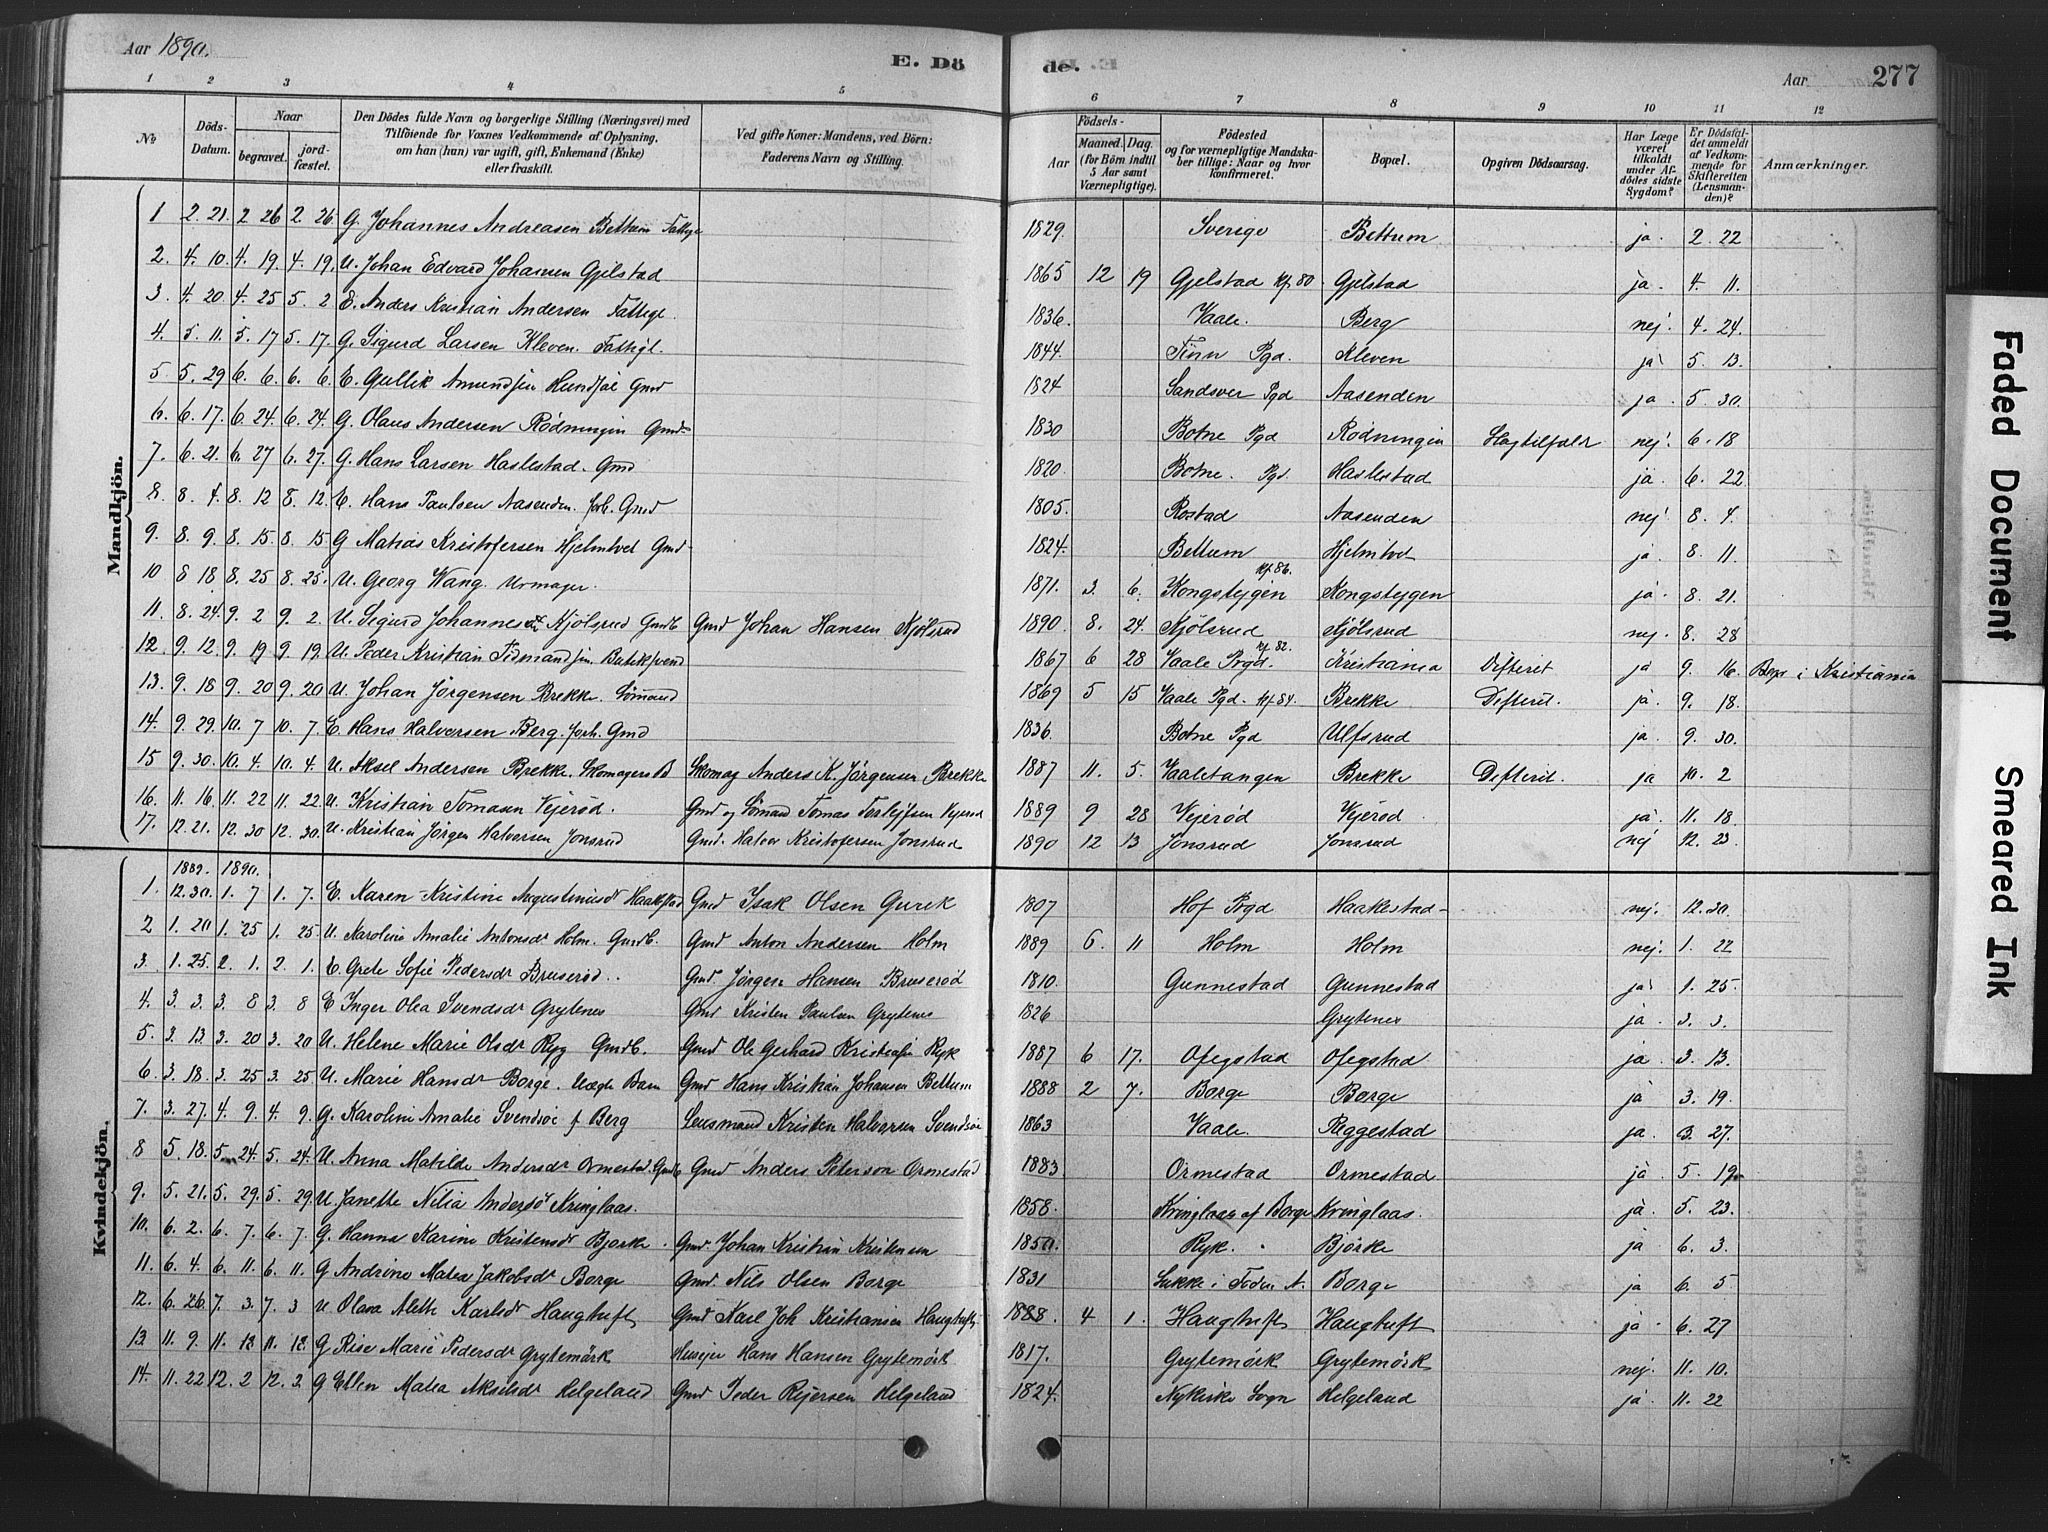 Aar 1890. E. Döde. Aar 277
1 2 3 4 5 6 7 8 9 10 11 12
№ Döds-Datum. Naar begravet. jordfæstet. Den Dödes fulde Navn og borgerlige Stilling (Næringsvei) med Tilföiende for Voxnes Vedkommende af Oplysning, om han (hun) var ugift, gift, Enkemand (Enke) eller fraskilt. Ved gifte Koner: Mandens, ved Börn: Faderens Navn og Stilling. Födsels- Aar Maaned. Dag. (for Börn indtil 5 Aar samt Værnepligtige). Födested og for værnepligtige Mandskaber tillige: Naar og hvor konfirmeret. Bopæl. Opgiven Dödsaarsag. Har Læge været tilkaldt under Afdödes sidste Sygdom? Er Dödsfaldet anmeldt af Vedkommende for Skifteretten (Lensmanden)? Anmærkninger.
Mandkjön.
1 2. 21. 2 26 2. 26. G. Johannes Andreasen Bettum Fattige 1829. Sverige Bettum ja. 2. 22
2. 4. 10. 4. 19. 4. 19. U. Johan Edvard Johansen Gjelstad 1865 12 19 Gjelstad kf 80 Gjelstad ja. 4. 11.
3. 4. 20. 4. 25 5. 2 E. Anders Kristian Andersen Fattige. 1836. Vaale. Berg nej. 4. 24.
4. 5. 11. 5. 17 5. 17. G. Sigurd Larsen Kleven. Fattigl. 1844. Tinn Pgd. Kleven ja 5. 13.
5 5. 29 6. 6. 6. 6. E. Gullik Amundsen Gmd 1824 Sandsver Pgd Aasenden ja. 5. 30.
6. 6. 17. 6. 24. 6. 24. G. Olaus Andersen Rödningen Gmd. 1830 Botne Pgd Rödningen Slagtilfælde nej. 6. 18
7. 6. 21. 6. 27 6. 27. G. Hans Larsen Haslestad. Gmd 1820. Botne. Pgd. Haslestad ja. 6. 22
8. 8. 4. 8. 12 8. 12. E. Hans Paulsen Aasenden. forh. Gmd 1805. Rostad Aasenden nej 8. 4.
9. 8. 9. 8. 15. 8. 15 G Matias Kristofersen Hjelmtvet Gmd. 1824. Bettum Hjelmtvet ja. 8. 11.
10 8 18 8. 25 8. 25. U. Georg Wang. Urmager. 1871. 3. 6. Kongsteygen kf. 86. Kongsteygen ja. 8. 21.
11. 8. 24. 9. 2 9. 2. U. Sigurd Johannesen Kjölsrud Gmdb. Gmd Johan Hansen Kjölsrud 1890. 8. 24. Kjölsrud Kjölsrud nej. 8. 28
12. 9. 12. 9. 19 9. 19. U. Peder Kristian Butiksvend 1867 6 28 Vaale Prgd. kf 82. Kristiania Difterit ja 9. 16. i Kristiania
13. 9. 18 9. 20 9. 20 U. Johan Jörgensen Brekke. Sömand 1869 5 15 Vaale Pgd. kf 84. Brekke Difterit. ja. 9. 18.
14. 9. 29. 10. 7 10. 7. E. Hans Halvorsen Berg. forh. Gmd 1836. Botne Pgd Ulfsrud ja. 9. 30.
15 9. 30. 10. 4. 10. 4. U. Aksel Andersen Brekke. Skomagers B Skomag Anders K. Jörgensen Brekke 1887 11. 5. Vaaletangen Brekke Difterit. ja 10. 2
16. 11. 16. 11. 22 11. 22 U. Kristian Tomasen Vejeröd. Gmd og Sömand Tomas Vejeröd 1889 9 28 Vejeröd Vejeröd ja. 11. 18.
17. 12. 21. 12. 30 12. 30. U. Kristian Jörgen Halvorsen Jonsrud Gmd. Halvor Kristofersen Jonsrud 1890 12 13 Jonsrud Jonsrud nej 12. 23.
Kvindekjön.
1889. 1890.
1. 12. 30. 1. 7 1. 7. E. Karen Kristine Augustinusdr Haakestad Gmd Isak Olsen Gurek 1807 Hof Prgd Haakestad nej. 12. 30.
2 1. 20 1. 25 1. 25 U. Karoline Amalie Antonsdr Holm. Gmdb. Gmd Anton Andersen Holm 1889 6. 11 Holm Holm nej. 1. 22
3. 1. 25. 2. 1. 2. 1 E. Grete Sofie Pedersdr Bruseröd. Gmd. Jörgen Hansen Bruseröd 1810. Gunnestad Gunnestad ja 1. 25.
4. 3. 3. 3. 8 3. 8 E Inger Olea Svendsdr Grytenes Gmd Kristen Paulsen Grytenes 1826 Grytenes ja. 3. 3.
5. 3. 13. 3. 20 3. 20 U. Helene Marie Olsdr Ryg Gmdb. Gmd Ole Gerhard Kristiansen Ryk 1887 6 17. Ofegstad Ofegstad ja 3. 13.
6. 3. 18. 3. 25 3. 25 U. Marie Hansdr Borge. Uægte Barn Gmd Hans Kristian Johansen Bettum 1888 2 7. Borge Borge ja 3. 19.
7. 3. 27. 4. 9 4. 9. G. Karoline Amalie Svendsöe f Berg Lensmand Kristen Halvorsen Svendsöe 1863 Vaale Reggestad ja. 3. 27.
8 5. 18. 5. 24. 5. 24. U. Anna Matilde Andersdr Ormestad. Gmdb Gmd Anders Peterson Ormestad 1883 Ormestad Ormestad ja 5. 19
9. 5. 21. 5. 29. 5. 29. U Janette Andersdr Kringlaas. 1858. Kringlaas af Borge Kringlaas. ja 5. 23.
10. 6. 2. 6. 7. 6. 7 G. Hanna Karine Kristensdr Bjorke. Gmd. Johan Kristian Kristensen 1850. Ryk. Bjorke ja 6. 3.
11. 6. 4. 6. 11. 6. 11. G Andrine Matea Jakobsdr Borge Gmd. Nils Olsen Borge 1831 Borge ja 6. 5
12. 6. 26. 7. 3. 7. 3 U Olava Alette Karlsdr Haugtuft Gmd Karl Joh Kristiansen Haugtuft 1888. 4 1. Haugtuft Haugtuft ja. 6. 27
13. 11. 9. 11. 12 11. 12. G Rise Marie Pedersdr Grytemörk Husejer Hans Hansen Grytemörk 1817. Grytemörk Grytemörk nej. 11. 10.
14. 11. 22 12. 2 12. 2. G Ellen Matea Akselsdr Helgeland Gmd Peder Rejersen Helgeland 1824. Nykirke Sogn Helgeland ja. 11. 22
Faded Document
Smeared Ink